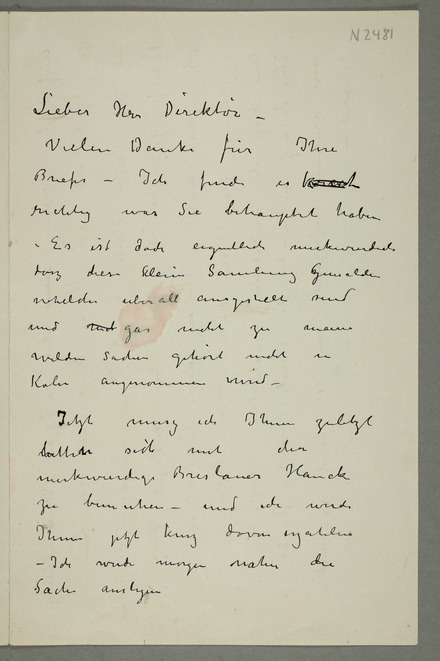 N2481
Lieber Herr Direktör –
Vielen Danke für Ihre
Briefs – Ich finde es
richtig was Sie behauptet haben
. Es ist doch eigentlich merkwürdich
dasz diese kleine Samlung Gemälde
welche überall ausgestelt sind
und gar nicht zu meine
wilden Sachen gehört nicht in
Köln angenommen wird –
Jetzt musz ich Ihnen zuletzt
bitten sich mit der
merkwürdige Breslauer
zu – und ich werde
Ihnen jetzt kurz davon erzählen
– Ich werde morgen die
Sache